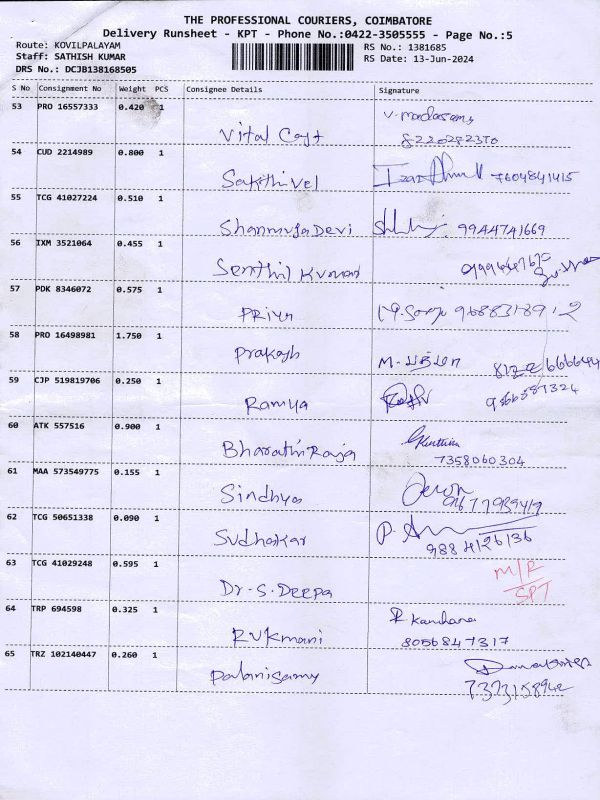 THE PROFESSIONAL COURIERS, COIMBATORE
Delivery Runsheet - KPT - Phone No.:0422-3505555 - Page No.:5
Route: KOVILPALAYAM
Staff: SATHISH KUMAR
DRS No.: DCJB138168505
RS No.: 1381685
RS Date: 13-Jun-2024
S No Consignment No Weight PCS Consignee Details Signature
53 PRO 16557333 0.420 1
V. madasamy
Vital
54 CUD 2214989 0.800 1
Sakthivel 7604841415
55 TCG 41027224 0.510 1
Shanmuga Devi 9944741669
56 IXM 3521064 0.455 1
Senthil Kumar
57 PDK 8346072 0.575 1
Priya
58 PRO 16498981 1.750 1
Prakash M-
59 CJP 519819706 0.250 1
Ramya
60 ATK 557516 0.900 1
BharathiRaja
7358060304
61 MAA 573549775 0.155 1
Sindhya
62 TCG 50651338 0.090 1
Sudhakar P.
9884126136
63 TCG 41029248 0.595 1
M/R
SPT
Dr.S.Deepa
64 TRP 694598 0.325 1
Rukmani
8056847317
65 TRZ 102140447 0.260 1
Palanisamy